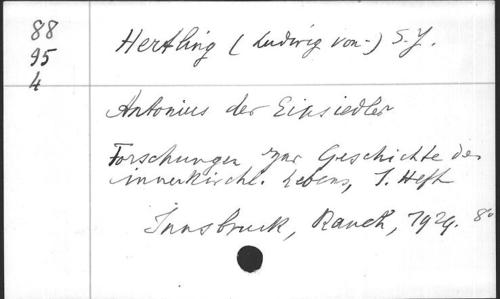 88
95
4
Hertling (Ludwig von-) S.J.
Antonius der Einsiedler
Forschungen zur Geschichte des
innerkirchl. Lebens, 1. Heft
Innsbruck, Rauch, 1929. 8°